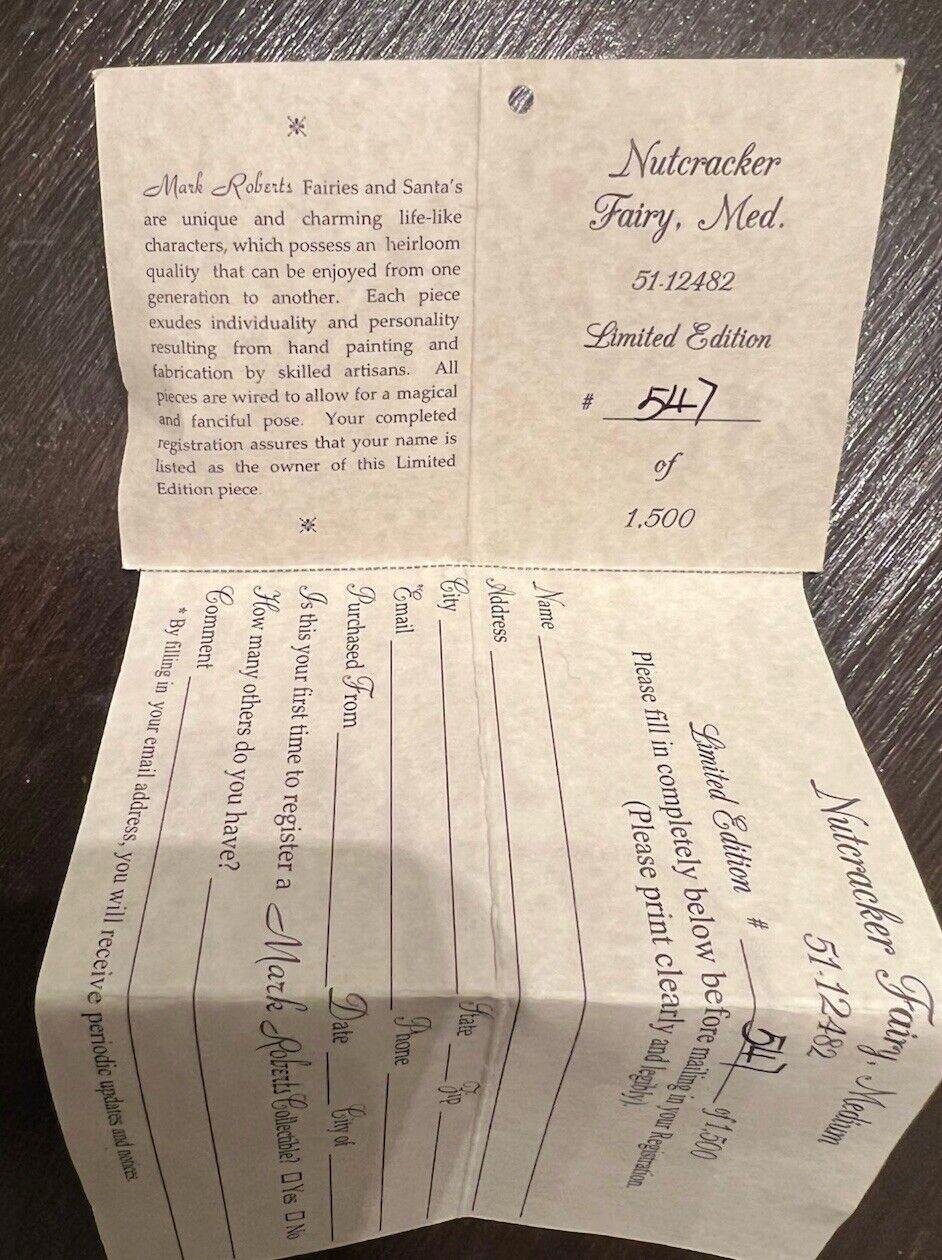 Mark Roberts Fairies and Santa's
are unique and charming life-like
characters, which possess an heirloom
quality that can be enjoyed from one
generation to another. Each piece
exudes individuality and personality
resulting from hand painting and
fabrication by skilled artisans. All
pieces are wired to allow for a magical
and fanciful pose. Your completed
registration assures that your name is
listed as the owner of this Limited
Edition piece.
Nutcracker
Fairy, Med.
51-12482
Limited Edition
# 547
of
1,500
Nutcracker Fairy, Medium
51-12482
Limited Edition # 547 of 1,500
Please fill in completely below before mailing in your Registration.
(Please print clearly and legibly).
Name
Address
City State Zip
*Email Phone
Purchased From Date City of
Is this your first time to register a Mark Roberts Collectible? □ Yes □ No
How many others do you have?
Comment
* By filling in your email address, you will receive periodic updates and notices.